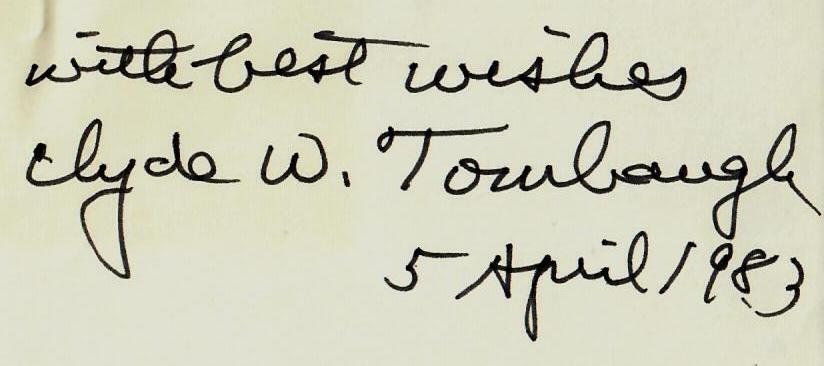 with best wishes
Clyde W. Tombaugh
5 April 1983